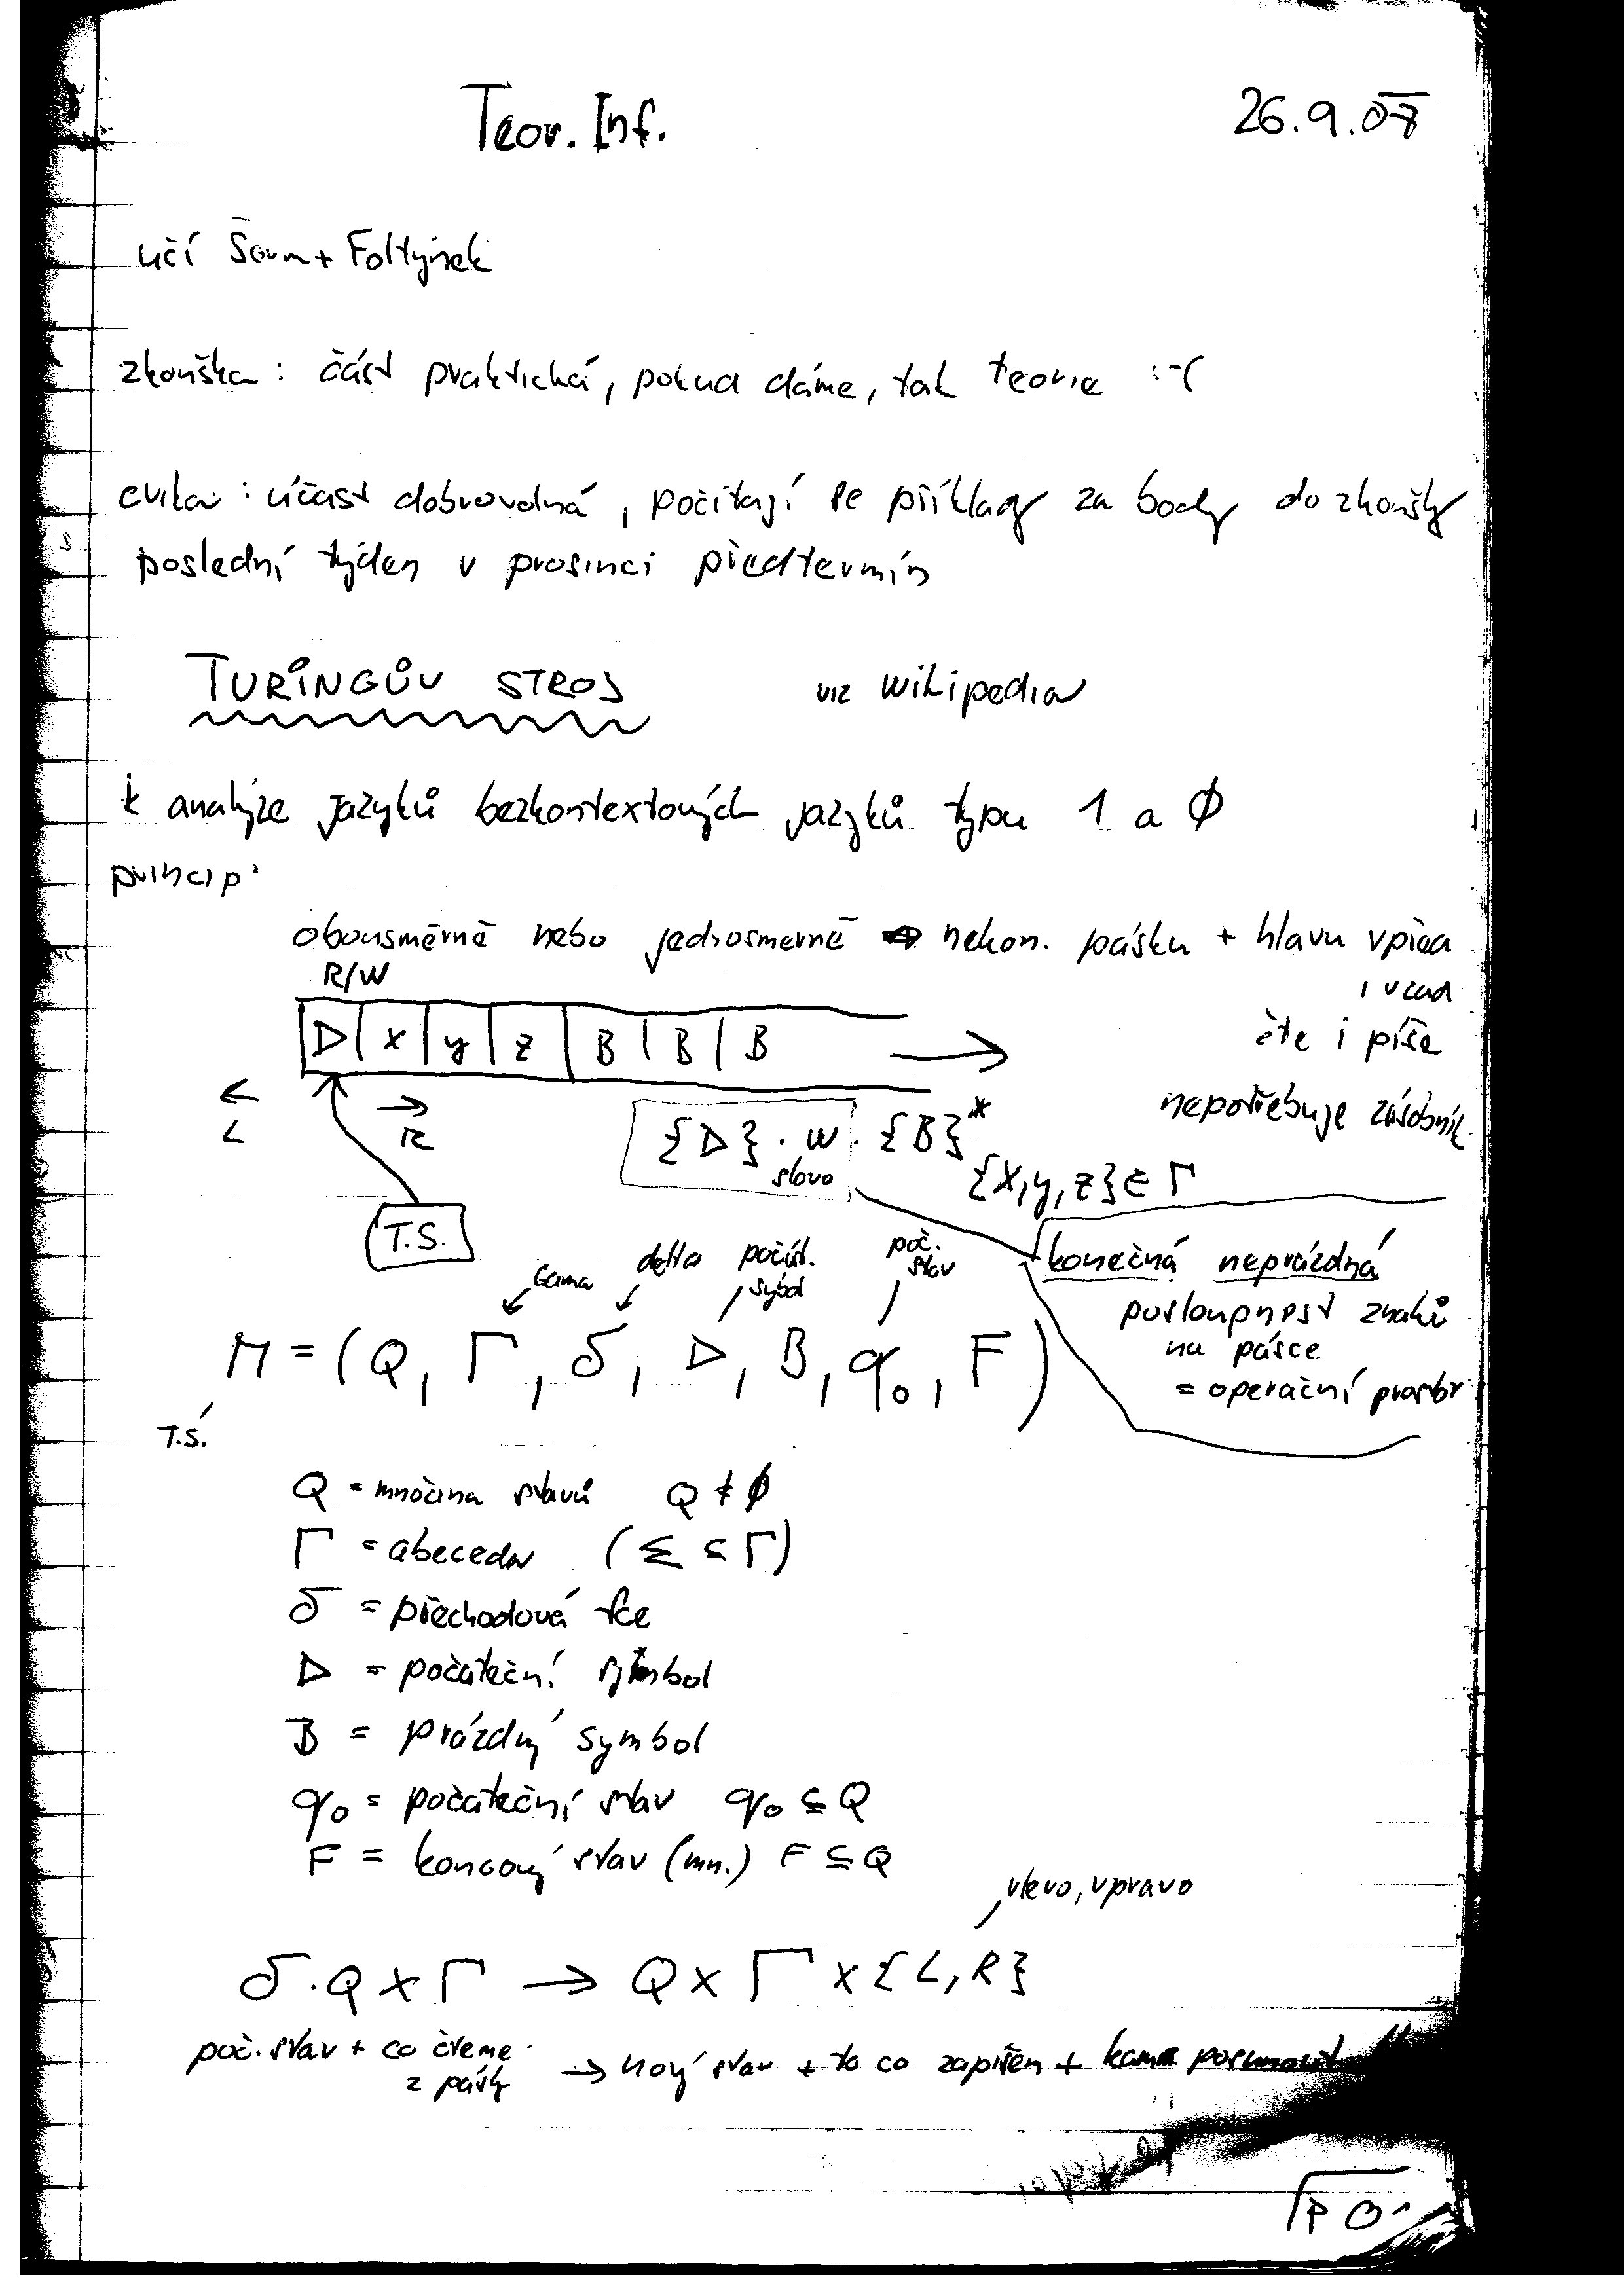 Teor. Inf.
26.9.07
učí Šorm + Foltýnek
zkouška: část praktická, pokud dáme, tak teorie :-(
cvika: účast dobrovolná, počítají se příklady za body do zkoušky
poslední týden v prosinci předtermín
TURINGŮV STROJ viz wikipedia
k analýze jazyků bezkontextových jazyků typu 1 a Ø
princip:
obousměrně nebo jednosměrně nekon. pásku + hlavu vpřed
i vzad
R/W
čte i píše
▷ | x | y | z | B | B | B →
nepotřebuje zásobník
← L → R
{▷} . w . {B}*
slovo
{x,y,z} ∈ Γ
T.S.
konečná neprázdná
posloupnost znaků
na pásce
= operační prostor
Gama delta počát. sybol poč. stav
M = (Q, Γ, δ, ▷, B, q₀, F)
T.S.
Q = množina stavů Q ≠ ∅
Γ = abeceda (Σ ⊆ Γ)
δ = přechodová fce
▷ = počáteční symbol
B = prázdný symbol
q₀ = počáteční stav q₀ ⊆ Q
F = koncový stav (mn.) F ⊆ Q
vlevo, vpravo
δ . Q × Γ → Q × Γ × {L, R}
poč. stav + co čteme
z pásky
→ nový stav + to co zapíšem + kam